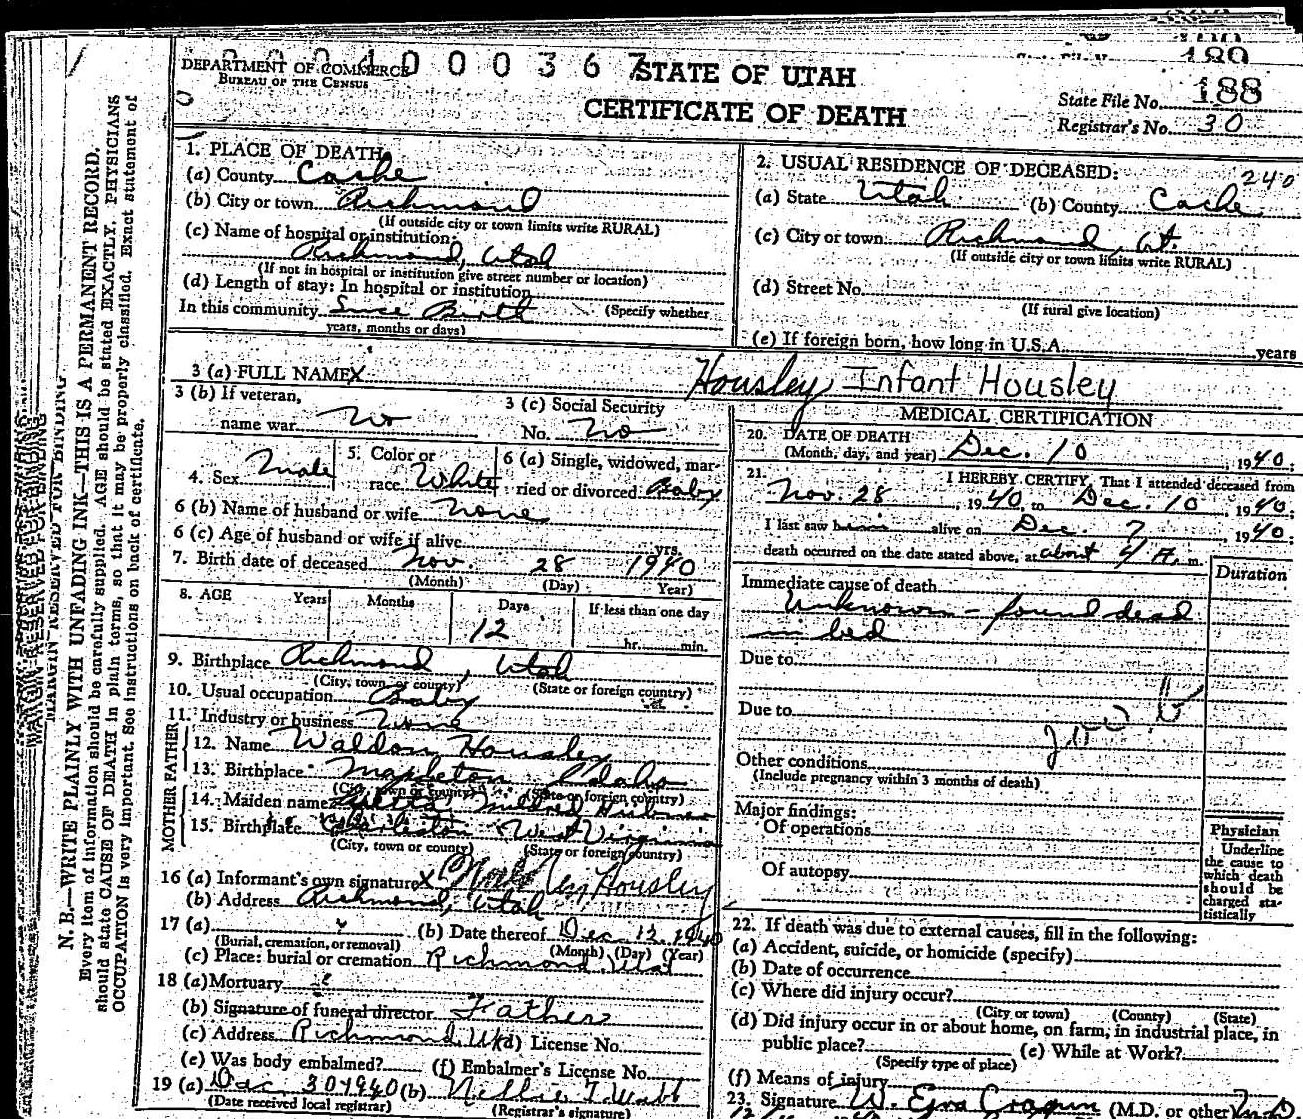 189
2 0 0 4 1 0 0 0 3 6 7
DEPARTMENT OF COMMERCE
BUREAU OF THE CENSUS
STATE OF UTAH
CERTIFICATE OF DEATH
State File No. 188
Registrar's No. 30
MARGIN RESERVED FOR BINDING
N. B.—WRITE PLAINLY WITH UNFADING INK—THIS IS A PERMANENT RECORD.
Every item of information should be carefully supplied. AGE should be stated EXACTLY. PHYSICIANS
should state CAUSE OF DEATH in plain terms, so that it may be properly classified. Exact statement of
OCCUPATION is very important. See instructions on back of certificate.
1. PLACE OF DEATH
(a) County Cache
(b) City or town Richmond
(If outside city or town limits write RURAL)
(c) Name of hospital or institution:
Richmond, Utah
(If not in hospital or institution give street number or location)
(d) Length of stay: In hospital or institution
In this community Since Birth (Specify whether
years, months or days)
2. USUAL RESIDENCE OF DECEASED:
240
(a) State Utah (b) County Cache
(c) City or town: Richmond, Ut.
(If outside city or town limits write RURAL)
(d) Street No.
(If rural give location)
(e) If foreign born, how long in U.S.A. years
3 (a) FULL NAME X Housley, Infant Housley
3 (b) If veteran,
name war No
3 (c) Social Security
No. No
4. Sex Male
5. Color or
race White
6 (a) Single, widowed, mar-
ried or divorced Baby
6 (b) Name of husband or wife none
6 (c) Age of husband or wife if alive yrs.
7. Birth date of deceased Nov. 28 1940
(Month) (Day) Year)
8. AGE Years Months Days If less than one day
12
hr. min.
9. Birthplace Richmond, Utah
(City, town or county) (State or foreign country)
10. Usual occupation Baby
11. Industry or business None
FATHER
12. Name Waldon Housley
13. Birthplace Mapleton Idaho
(City, town or county) (State or foreign country)
MOTHER
14. Maiden name Mildred
15. Birthplace Charleston West Virginia
(City, town or county) (State or foreign country)
16 (a) Informant's own signature X Housley
(b) Address Richmond, Utah
17 (a) (b) Date thereof Dec 12, 1940
(Burial, cremation, or removal) (Month) (Day) (Year)
(c) Place: burial or cremation Richmond Utah
18 (a) Mortuary
(b) Signature of funeral director Father
(c) Address Richmond, Utah (d) License No.
(e) Was body embalmed? (f) Embalmer's License No.
19 (a) Dec 30 1940 (b) Nellie T. Webb
(Date received local registrar) (Registrar's signature)
MEDICAL CERTIFICATION
20. DATE OF DEATH
(Month, day, and year) Dec. 10 1940;
21. I HEREBY CERTIFY, That I attended deceased from
Nov. 28, 1940, to Dec. 10, 1940;
I last saw him alive on Dec. 7, 1940;
death occurred on the date stated above, at about 4 A. m.
Duration
Immediate cause of death
Unknown - found dead
in bed
Due to
Due to
Other conditions
(Include pregnancy within 3 months of death)
Major findings:
Of operations
Of autopsy
Physician
Underline
the cause to
which death
should be
charged sta-
tistically
22. If death was due to external causes, fill in the following:
(a) Accident, suicide, or homicide (specify)
(b) Date of occurrence
(c) Where did injury occur?
(City or town) (County) (State)
(d) Did injury occur in or about home, on farm, in industrial place, in
public place? (e) While at Work?
(Specify type of place)
(f) Means of injury
23. Signature W. Ezra Cragun (M.D. or other) M.D.